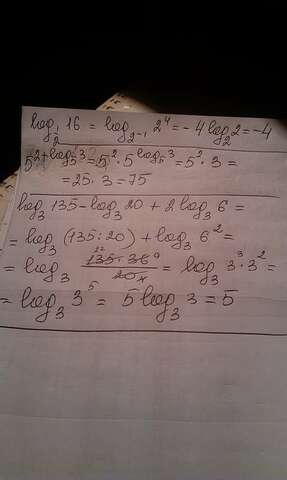 log_{1/2} 16 = log_{2^{-1}} 2^4 = -4 log_2 2 = -4
5^{2+log_5 3} = 5^2 · 5^{log_5 3} = 5^2 · 3 =
= 25 · 3 = 75
log_3 135 - log_3 20 + 2 log_3 6 =
= log_3 (135 : 20) + log_3 6^2 =
= log_3 \frac{135 · 36}{20} = log_3 3^3 · 3^2 =
= log_3 3^5 = 5 log_3 3 = 5